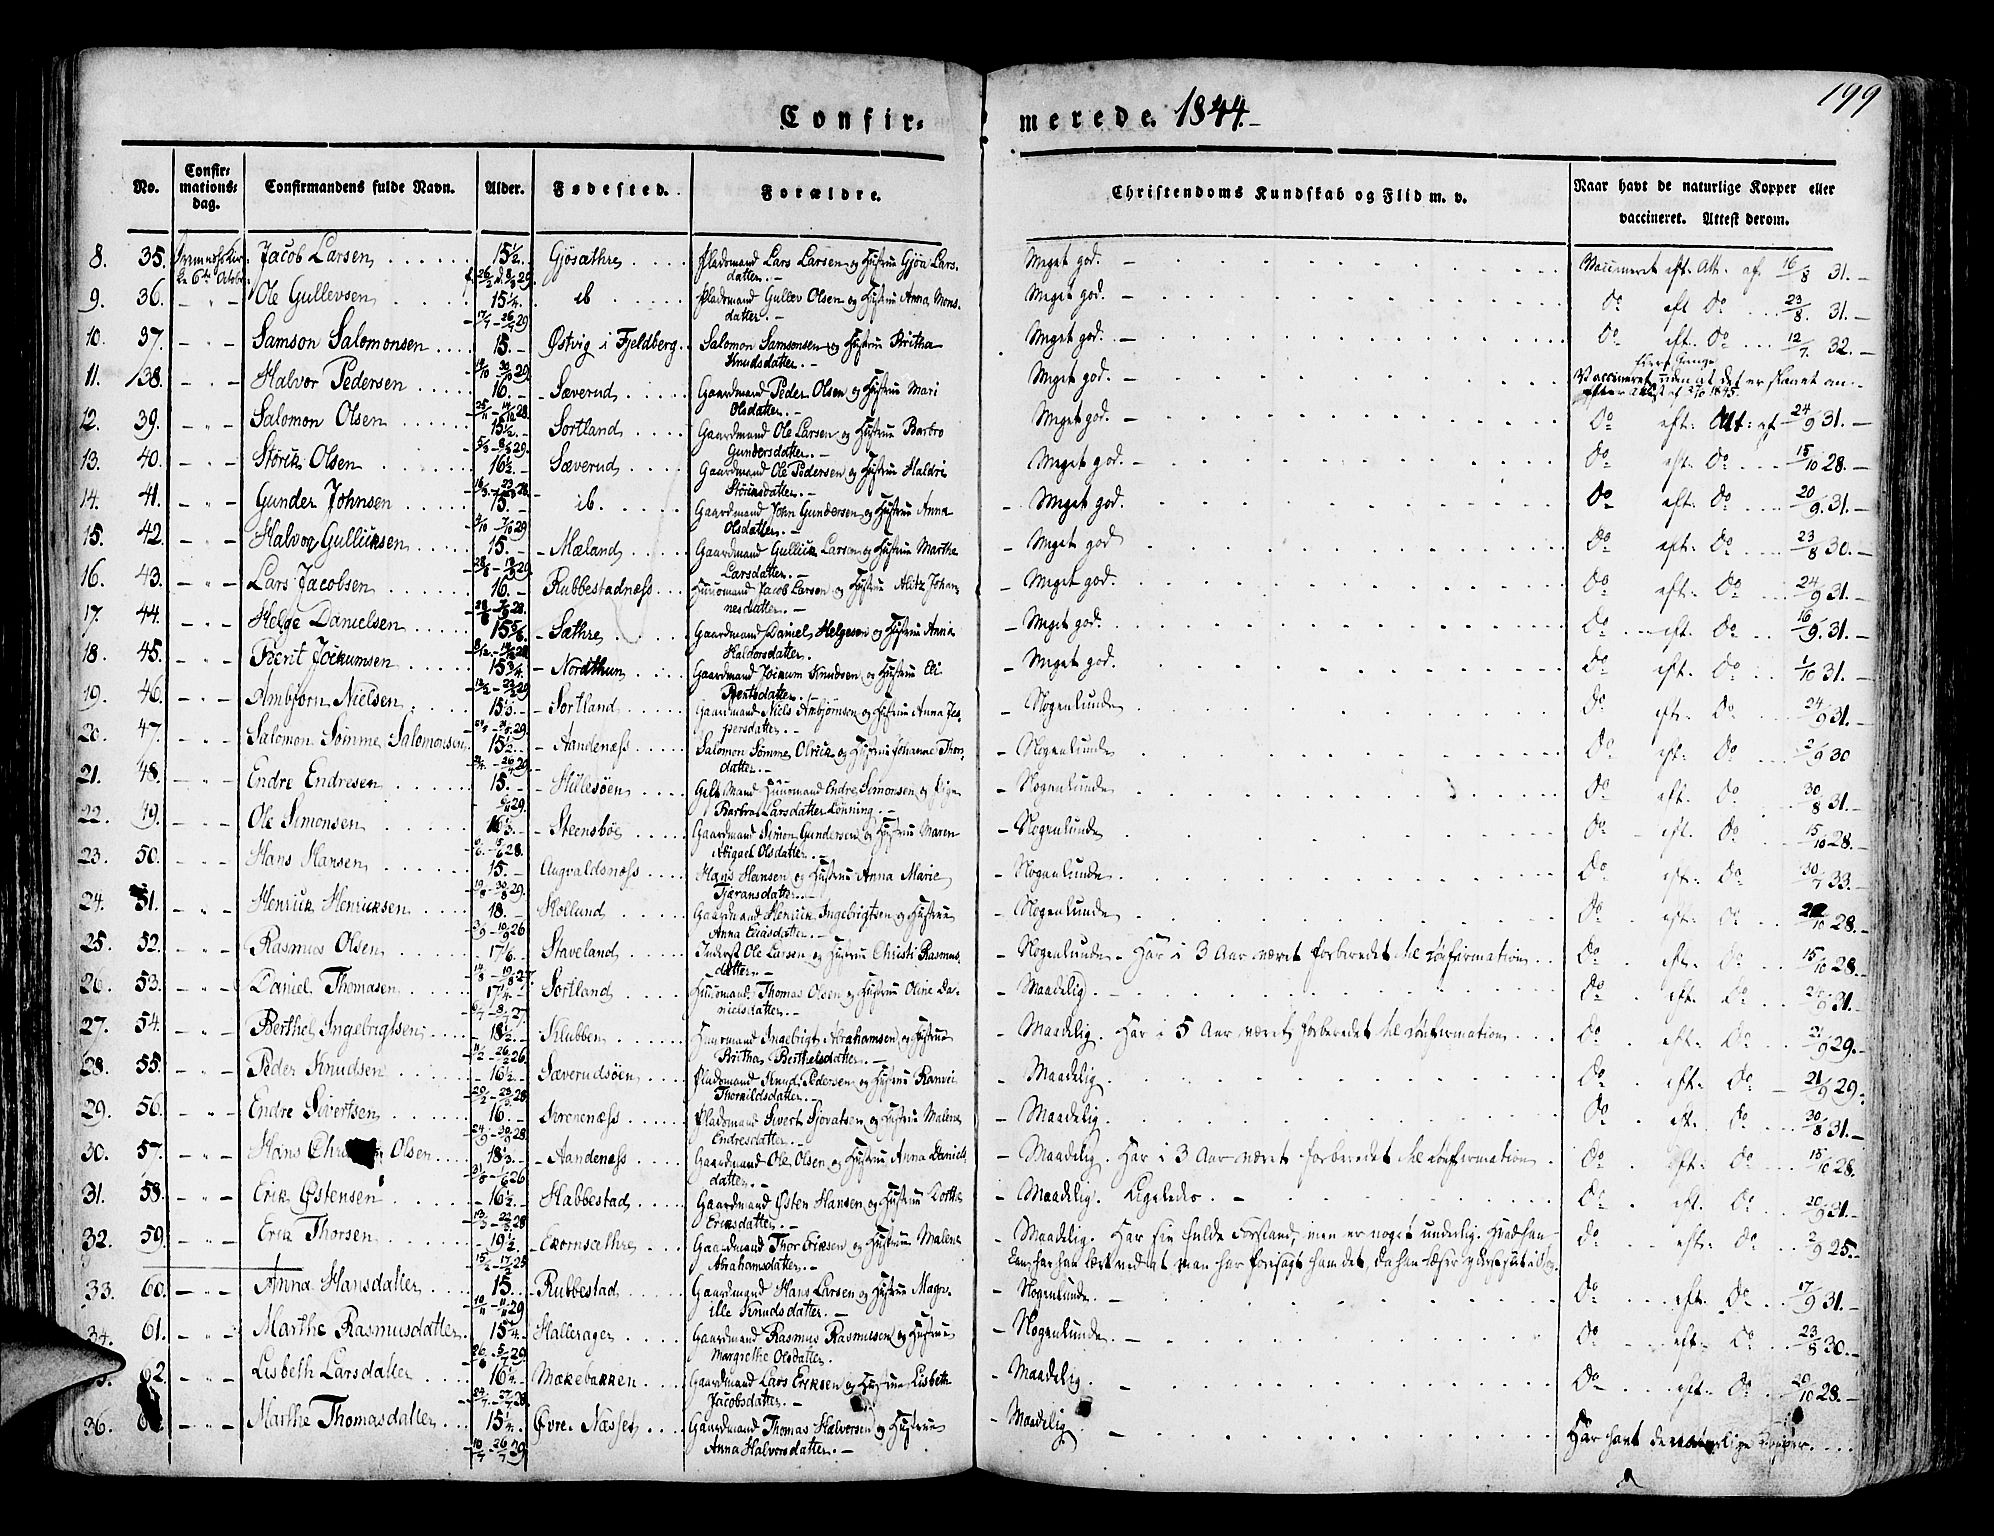 199
Confir- merede. 1844.
No. Confir-mations-dag. Confirmandens fulde Navn. Alder. Fødested. Forældre. Christendoms Kundskab og Flid m. v. Naar havt de naturlige Kopper eller vaccineret. Attest derom.
8. 35. 6te October Jacob Larsen 15½. Gjøsæthre Pladsmand Lars Larsen og Hustrue Gjøa Lars-
datter. Meget god. Vaccineret eft. Att. af 16/8 31.
9. 36. Ole Gullevsen 15¼. ib Pladsmand Gullev Olsen og Hustrue Anna Mons-
datter. Meget god. Do eft Do 23/8. 31.
10. 37. Samson Salomonsen 15. Østvig i Fjeldberg. Salomon Samsonsen og Hustrue Britha
Knudsdatter. Meget god. Do eft. Do 12/7. 32.
11. 38. Halvor Pedersen 16. Sæverud Gaardmand Peder Olsen og Hustrue Mari
Olsdatter. Meget god. Vaccineret uden at det er slaaet an
12. 39. Salomon Olsen 15½. Sortland Gaardmand Ole Larsen og Hustrue Barbro
Gundersdatter. Meget god. Do eft: Att: af 24/9 31.
13. 40. Størik Olsen 16½. Sæverud Gaardmand Ole Pedersen og Hustrue Haldri
Støriksdatter. Meget god. Do eft. Do 15/10 28.
14. 41. Gunder Johnsen 15. ib. Gaardmand John Gundersen og Hustrue Anna
Olsdatter. Meget god. Do eft. Do 20/9. 31.
15. 42. Halvor Gulliksen 15. Mæland Gaardmand Gullik Larsen og Hustrue Marthe
Larsdatter. Meget god Do eft. Do 23/8 30.
16. 43. Lars Jacobsen 16. Rubbestadnæss Huusmand Jacob Larsen og Hustrue Alitz Johan-
nesdatter. Meget god. Do eft. Do 24/9 31.
17. 44. Helge Danielsen 15 5/6. Sæthre Gaardmand Daniel Helgesen og Hustrue Anna
Haldorsdatter. Meget god. Do eft. Do 16/9. 31.
18. 45. Berit Jokumsen 15¾. Nordthun Gaardmand Jockum Knudsen og Hustrue Eli
Bentsdatter. Meget god. Do eft. Do 1/10 31.
19. 46. Ambjørn Nielsen 15⅓. Sortland Gaardmand Niels Ambjørnsen og Hustrue Anna Jes-
persdatter. Nogenlunde Do eft. Do 24/9 31.
20. 47. Salomon Sømme Salomonsen 15½. Aandenæss Salomon Sømme Olrick og Hustrue Johanne Thor-
datter. Nogenlunde Do eft. Do 2/9 30
21. 48. Endre Endresen 15. Hillesøen Gift Mand Huusmand Endre Simonsen og Pigen
Barbro Larsdatter Lønning. Nogenlunde Do eft. Do 30/8 31.
22. 49. Ole Simonsen 16⅓. Steensbøe Gaardmand Simon Gundersen og Hustrue Maren
Abigael Olsdatter. Nogenlunde Do eft. Do 15/10 28.
23. 50. Hans Hansen 15. Augvaldsnæss Hans Hansen og Hustrue Anna Marie
Tjøransdatter. Nogenlunde Do eft. Do 30/7 33.
24. 51. Henrik Henriksen 18. Hollund Gaardmand Henrik Ingebrigtsen og Hustrue
Anna datter. Nogenlunde Do eft. Do 28.
25. 52. Rasmus Olsen 17⅙. Staveland Inderst Ole Larsen og Hustrue Christi Rasmus-
datter. Nogenlunde. Har i 3 Aar været forberedet til Confirmation Do eft. Do 15/10 28.
26. 53. Daniel Thomasen 17¼. Sortland Huusmand Thomas Olsen og Hustrue Oline Da-
nielsdatter. Maadelig. Do eft. Do 24/9 31.
27. 54. Berthel Ingebrigtsen 18½. Klubben Huusmand Ingebrigt Abrahamsen og Hustrue
Britha Berthelsdatter. Maadelig. Har i 5 Aar været forberedet til Confirmation Do eft. Do 21/9 29.
28. 55. Peder Knudsen 16½. Sæverudsøen Pladsmand Knud Pedersen og Hustrue Ranvei
Thorkildsdatter. Maadelig Do eft. Do 21/9 29.
29. 56. Endre Sivertsen 16. Sorenenæss Pladsmand Sivert Sjovatsen og Hustrue Malene
Endresdatter. Maadelig. Do eft. Do 30/8 31.
30. 57. Hans Olsen 18⅓. Aandenæss Gaardmand Ole Olsen og Hustrue Anna Daniels-
datter. Maadelig. Har i 3 Aar været forberedet til Confirmation Do eft. Do 15/10 28.
31. 58. Erik Østensen 16½. Habbestad Gaardmand Østen Hansen og Hustrue Dorthe
Eriksdatter. Maadelig. Ligeledes. Do eft. Do 20/9 31.
32. 59. Erik Thorsen 19½. Ekornsæthre Gaardmand Thor Eriksen og Hustrue Malene
Abrahamsdatter. Maadelig. Har sin fulde Forstand, men er noget underlig. Hvad han
kan, har han lært ved at man har foresagt ham det, da han læser yderst slet i Bog. do eft. Do 2/9 25.
33. 60. Anna Hansdatter 15. Rubbestad Gaardmand Hans Larsen og Hustrue Magn-
ille Knudsdatter. Nogenlunde. Do eft. Do 17/9 31.
34. 61. Marthe Rasmusdatter 15¼. Hallerager Gaardmand Rasmus Rasmusen og Hustrue
Margrethe Olsdatter. Nogenlunde. Do eft. Do 23/8 30.
62. Lisbeth Larsdatter 16¼. Mækebakken Gaardmand Lars Eriksen og Hustrue Lisbeth
Jacobsdatter. Maadelig. Do eft. Do 20/10 28.
36. Marthe Thomasdatter 15¼. Øvre Næsset Gaardmand Thomas Halvorsen og Hustrue
Anna Halvorsdatter. Maadelig. Har havt de naturlige Kopper.